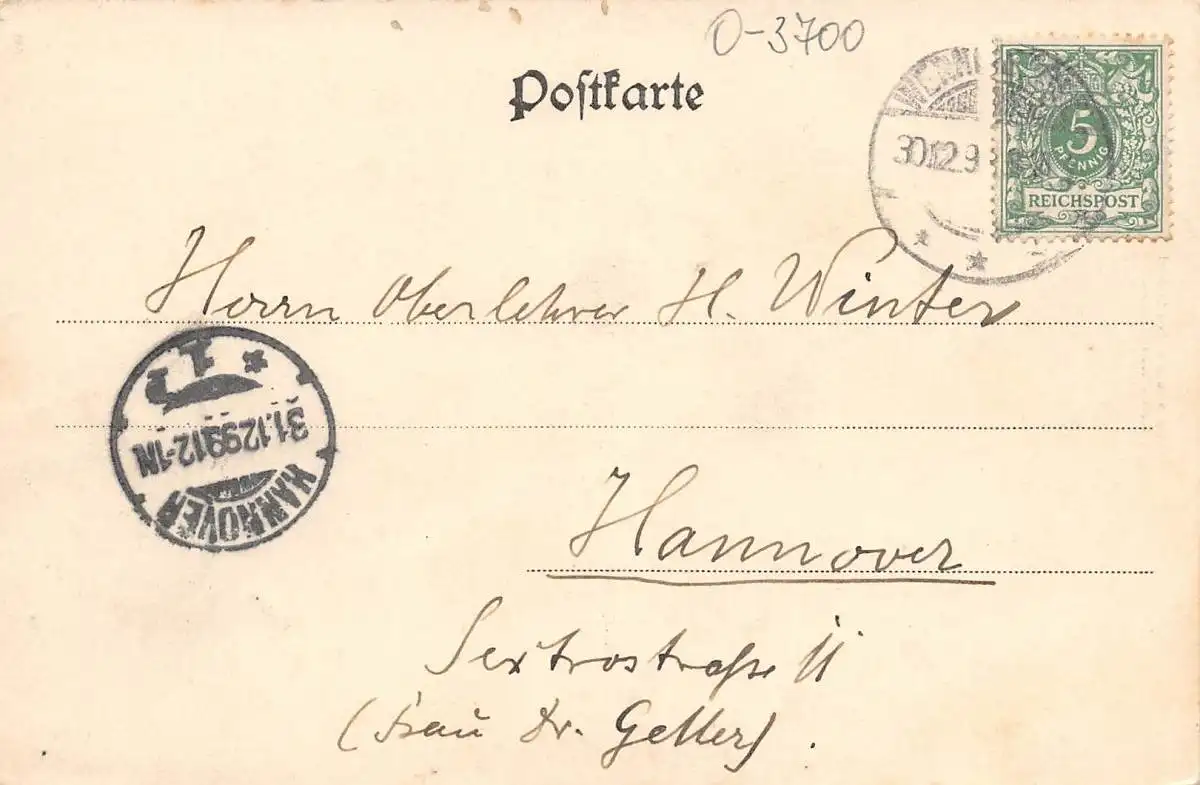 O-3700
Postkarte
30.12.9
5
PFENNIG
REICHSPOST
Herrn Oberlehrer H. Winter
1
31.12.99.12-1N
HANNOVER
Hannover
Sextrostraße 11
(Frau Dr. Geller).